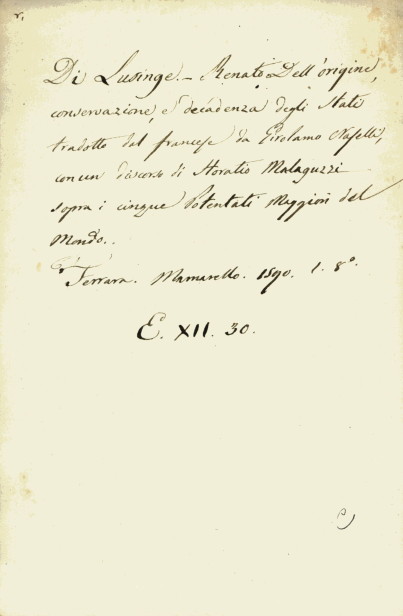 Di Lusinge. - Renato - Dell'origine,
conservazione, e decadenza degli Stati
tradotto dal francese da Girolamo Naselli,
con un discorso di Horatio Malaguzzi
sopra i cinque Potentati Maggiori del
Mondo..
Ferrara. Mamarello. 1590. 1. 8°.
E. XII. 30.